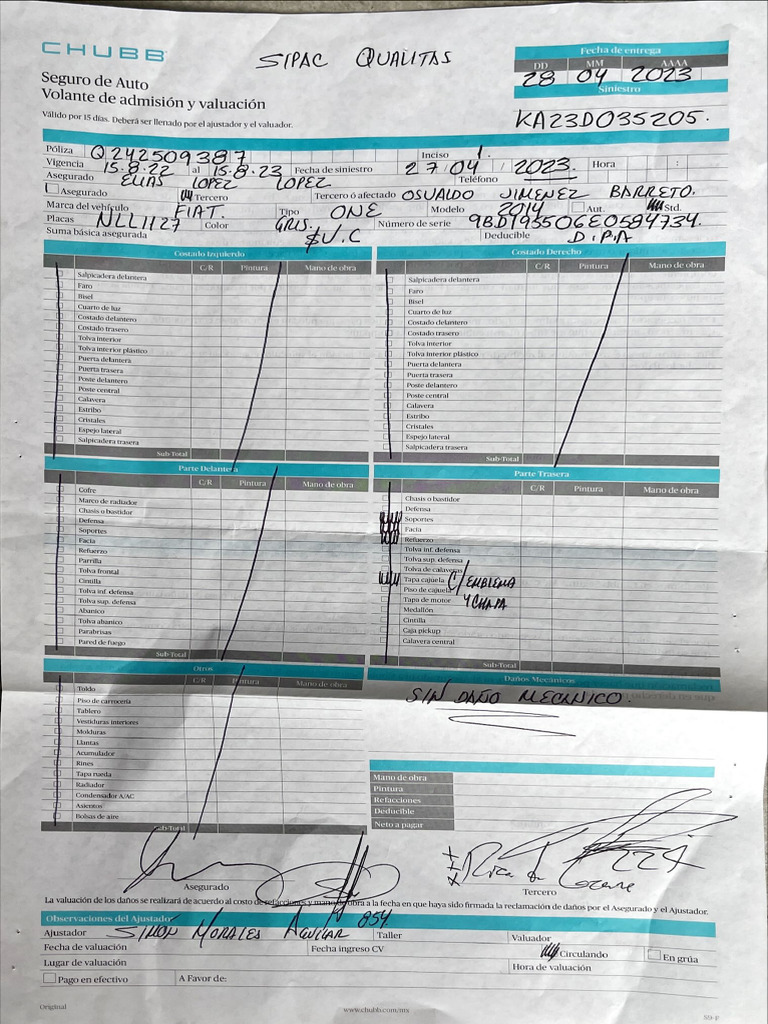 CHUBB
SIPAC QUALITAS
Seguro de Auto
Volante de admisión y valuación
Válido por 15 días. Deberá ser llenado por el ajustador y el valuador.
Fecha de entrega
DD MM AAAA
28 04 2023
Siniestro
KA23D035205.
Póliza Q242509387 Inciso 1.
Vigencia 15.8.22 al 15.8.23 Fecha de siniestro 27/04/2023. Hora :
Asegurado ELIAS LOPEZ LOPEZ Teléfono
Asegurado Tercero Tercero ó afectado OSUALDO JIMENEZ BARRETO.
Marca del vehículo FIAT. Tipo ONE Modelo 2014 Aut. Std.
Placas NLL1127 Color GRIS. Número de serie 9BD195506E0584734.
Suma básica asegurada $V.C Deducible D.I.P.A
Costado Izquierdo
C/R Pintura Mano de obra
Salpicadera delantera
Faro
Bisel
Cuarto de luz
Costado delantero
Costado trasero
Tolva interior
Tolva interior plástico
Puerta delantera
Puerta trasera
Poste delantero
Poste central
Calavera
Estribo
Cristales
Espejo lateral
Salpicadera trasera
Sub-Total
Costado Derecho
C/R Pintura Mano de obra
Salpicadera delantera
Faro
Bisel
Cuarto de luz
Costado delantero
Costado trasero
Tolva interior
Tolva interior plástico
Puerta delantera
Puerta trasera
Poste delantero
Poste central
Calavera
Estribo
Cristales
Espejo lateral
Salpicadera trasera
Sub-Total
Parte Delantera
C/R Pintura Mano de obra
Cofre
Marco de radiador
Chasis o bastidor
Defensa
Soportes
Facia
Refuerzo
Parrilla
Tolva frontal
Cintilla
Tolva inf. defensa
Tolva sup. defensa
Abanico
Tolva abanico
Parabrisas
Pared de fuego
Sub-Total
Parte Trasera
C/R Pintura Mano de obra
Chasis o bastidor
Defensa
Soportes
Facia
Refuerzo
Tolva inf. defensa
Tolva sup. defensa
Tolva de calaveras
Tapa cajuela C/EMBLEMA
Piso de cajuela Y CHAPA
Tapa de motor
Medallón
Cintilla
Caja pickup
Calavera central
Sub-Total
Otros
C/R Pintura Mano de obra
Toldo
Piso de carrocería
Tablero
Vestiduras interiores
Molduras
Llantas
Acumulador
Rines
Tapa rueda
Radiador
Condensador A/AC
Asientos
Bolsas de aire
Sub-Total
Daños Mecánicos
SIN DAÑO MECANICO.
Mano de obra
Pintura
Refacciones
Deducible
Neto a pagar
Asegurado
Tercero
La valuación de los daños se realizará de acuerdo al costo de refacciones y mano de obra a la fecha en que haya sido firmada la reclamación de daños por el Asegurado y el Ajustador.
Observaciones del Ajustador
Ajustador SIMÓN MORALES AGUILAR 854. Taller Valuador
Fecha de valuación Fecha ingreso CV Circulando En grúa
Lugar de valuación Hora de valuación
Pago en efectivo A Favor de:
Original
www.chubb.com/mx
SG-P